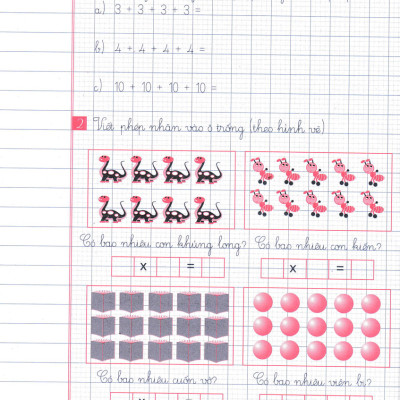 a) 3 + 3 + 3 + 3 =
b) 4 + 4 + 4 + 4 =
c) 10 + 10 + 10 + 10 =
2 Viết phép nhân vào ô trống (theo hình vẽ)
Có bao nhiêu con khủng long? Có bao nhiêu con kiến?
x = x =
Có bao nhiêu cuốn vở? Có bao nhiêu viên bi?
x = x =